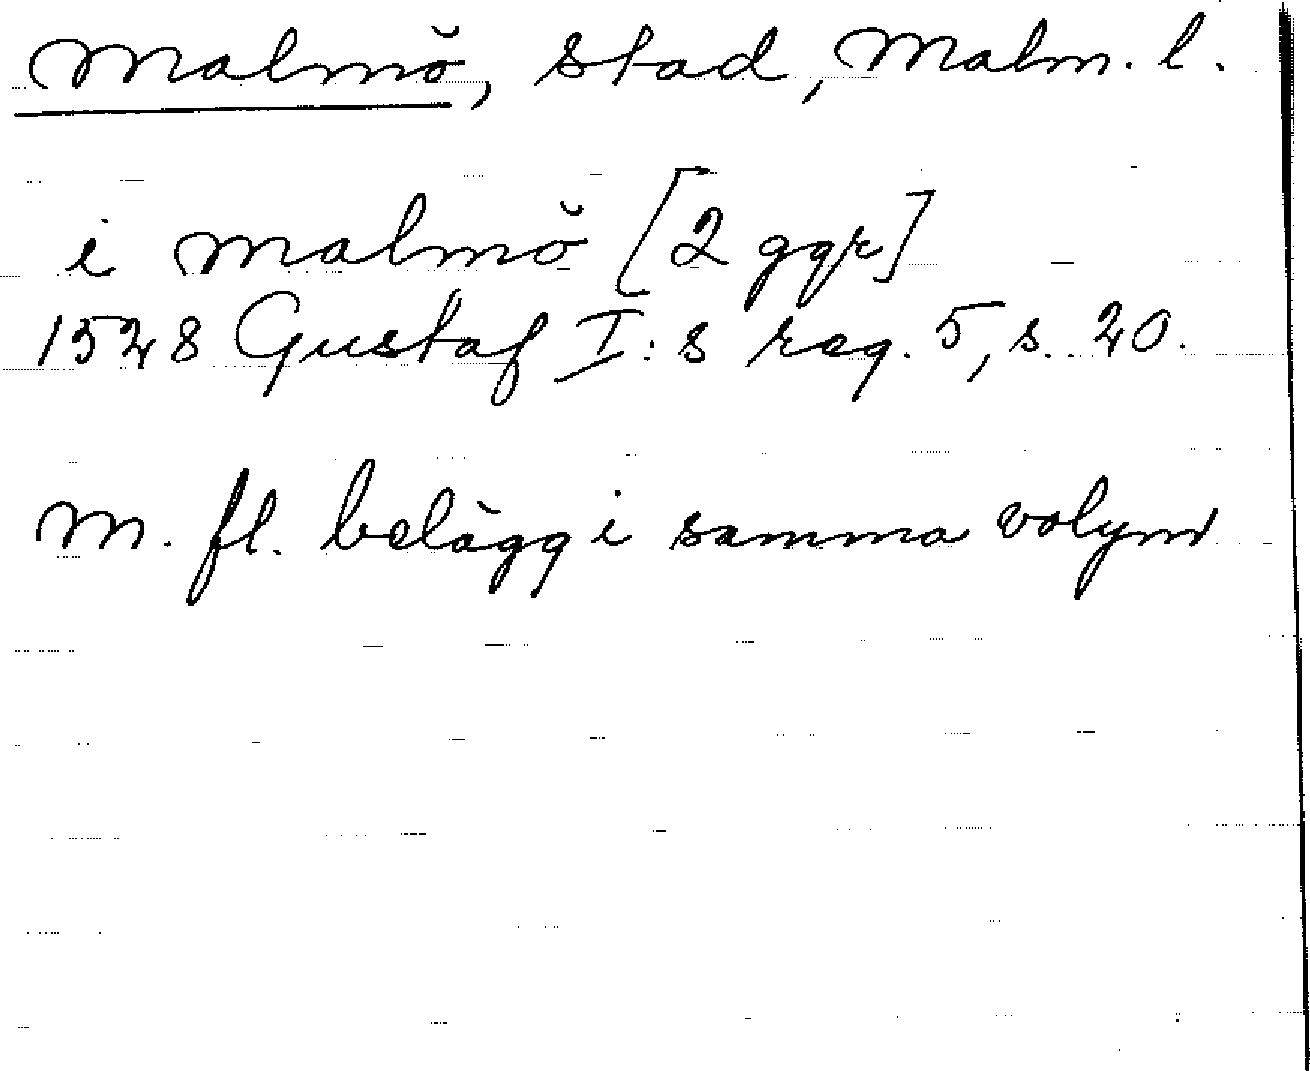 Malmö, stad, Malm. l.
i malmö [2 ggr]
1528 Gustaf I:s reg. 5, s. 20.
m. fl. belägg i samma volym